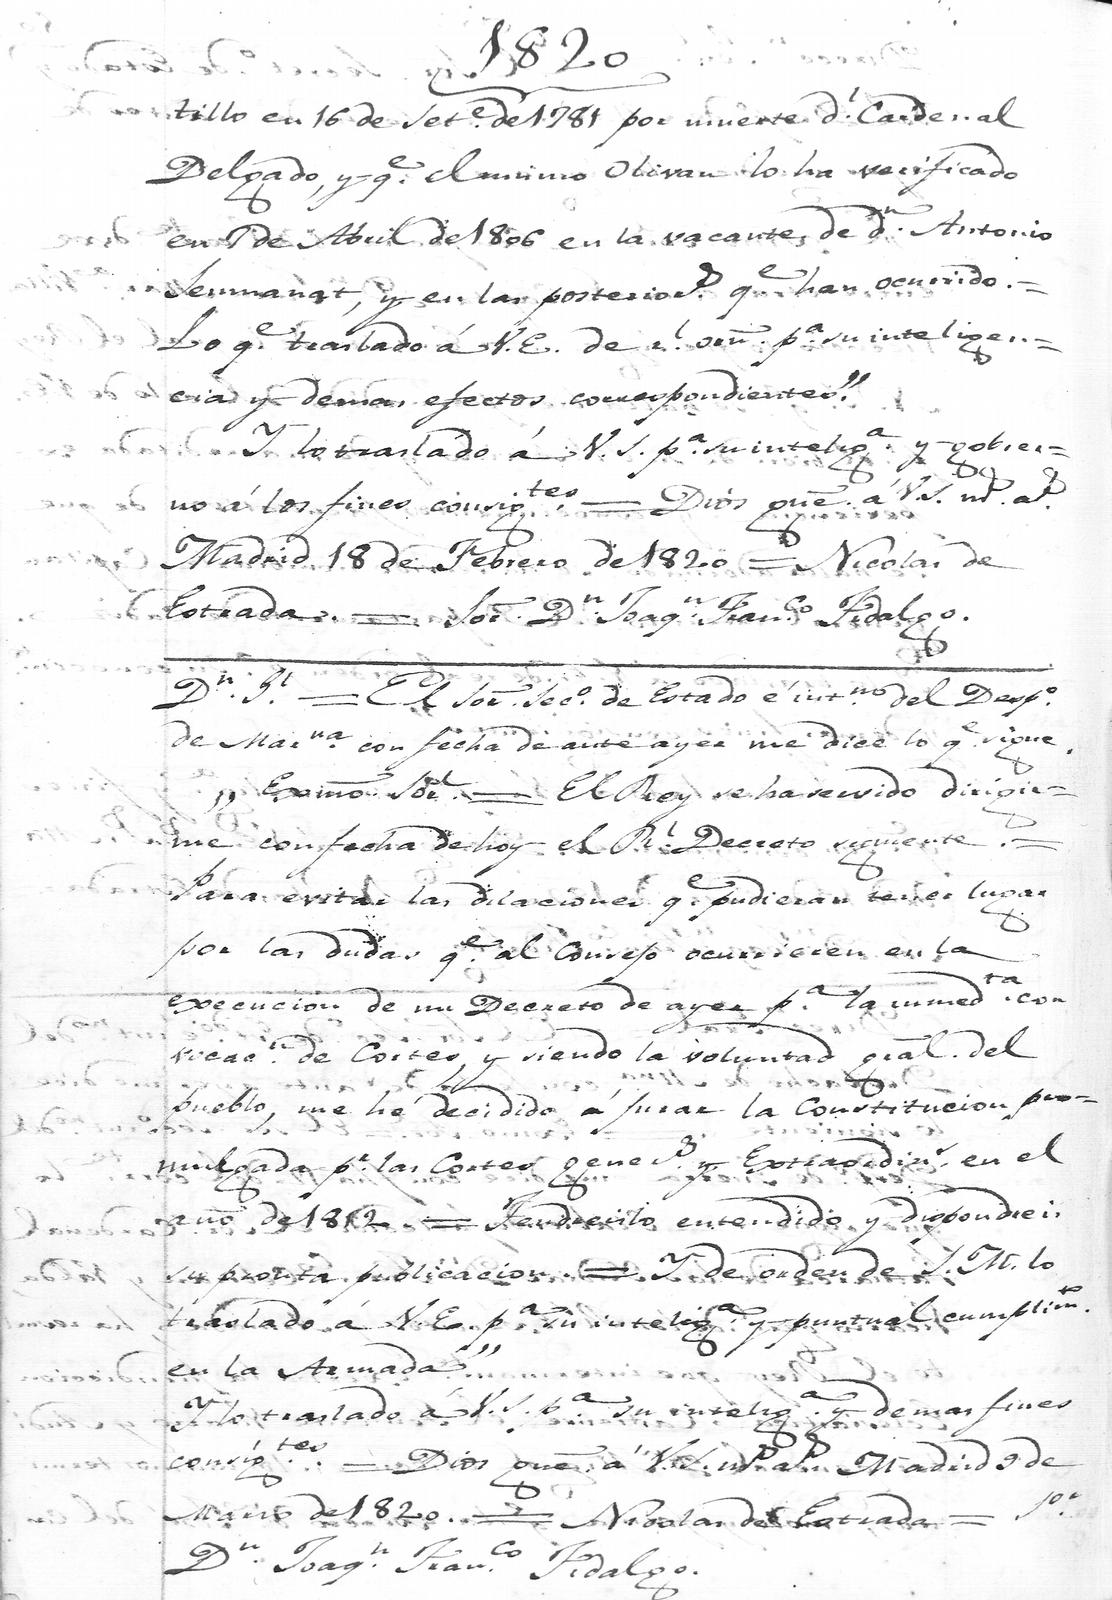 1820
tillo en 16 de Set.e de 1781 por muerte d.l Cardenal
Delgado, y q.e el mismo Olivan lo ha verificado
en 1 de Abril de 1806 en la vacante de d.n Antonio
Senmanat, y en las posterior.s q.e han ocurrido. =
Lo q.e traslado á V.E. de r.l orn. p.a su inteligen=
cia y demas efectos correspondientes."
Y lo traslado á V.S. p.a su intelig.a y gobier=
no á los fines consig.tes = Dios gue. á V.S. m.s a.s
Madrid 18 de Febrero de 1820 = Nicolas de
Estrada. = Sor. D.n Joaq.n Fran.co Fidalgo.
D.n G.l = El Sor. Sec.o de Estado é int.no del Desp.o
de Mar.na con fecha de ante ayer me dice lo q.e sigue.
" Exmo. Sor. = El Rey se ha servido dirigir=
me con fecha de hoy el R.l Decreto siguiente. =
Para evitar las dilaciones q.e pudieran tener lugar
por las dudas q.e al Consejo ocurrieren en la
execucion de mi Decreto de ayer p.a la inmed.ta con
vocac.n de Cortes, y siendo la voluntad gral. del
pueblo, me hé decidido á jurar la Constitucion pro=
mulgada p.r las Cortes gener.s y Extraordin.s en el
año de 1812 = Tendreislo entendido y dispondreis
su pronta publicacion. = Y de orden de S.M. lo
traslado á V.E. p.a su intelig.a y puntual cumplim.to
en la Armada"
Y lo traslado á V.S. p.a su intelig.a y demas fines
consig.tes = Dios gue. á V.S. m.s a.s Madrid 9 de
Marzo de 1820. = Nicolas de Estrada = S.or
D.n Joaq.n Fran.co Fidalgo.